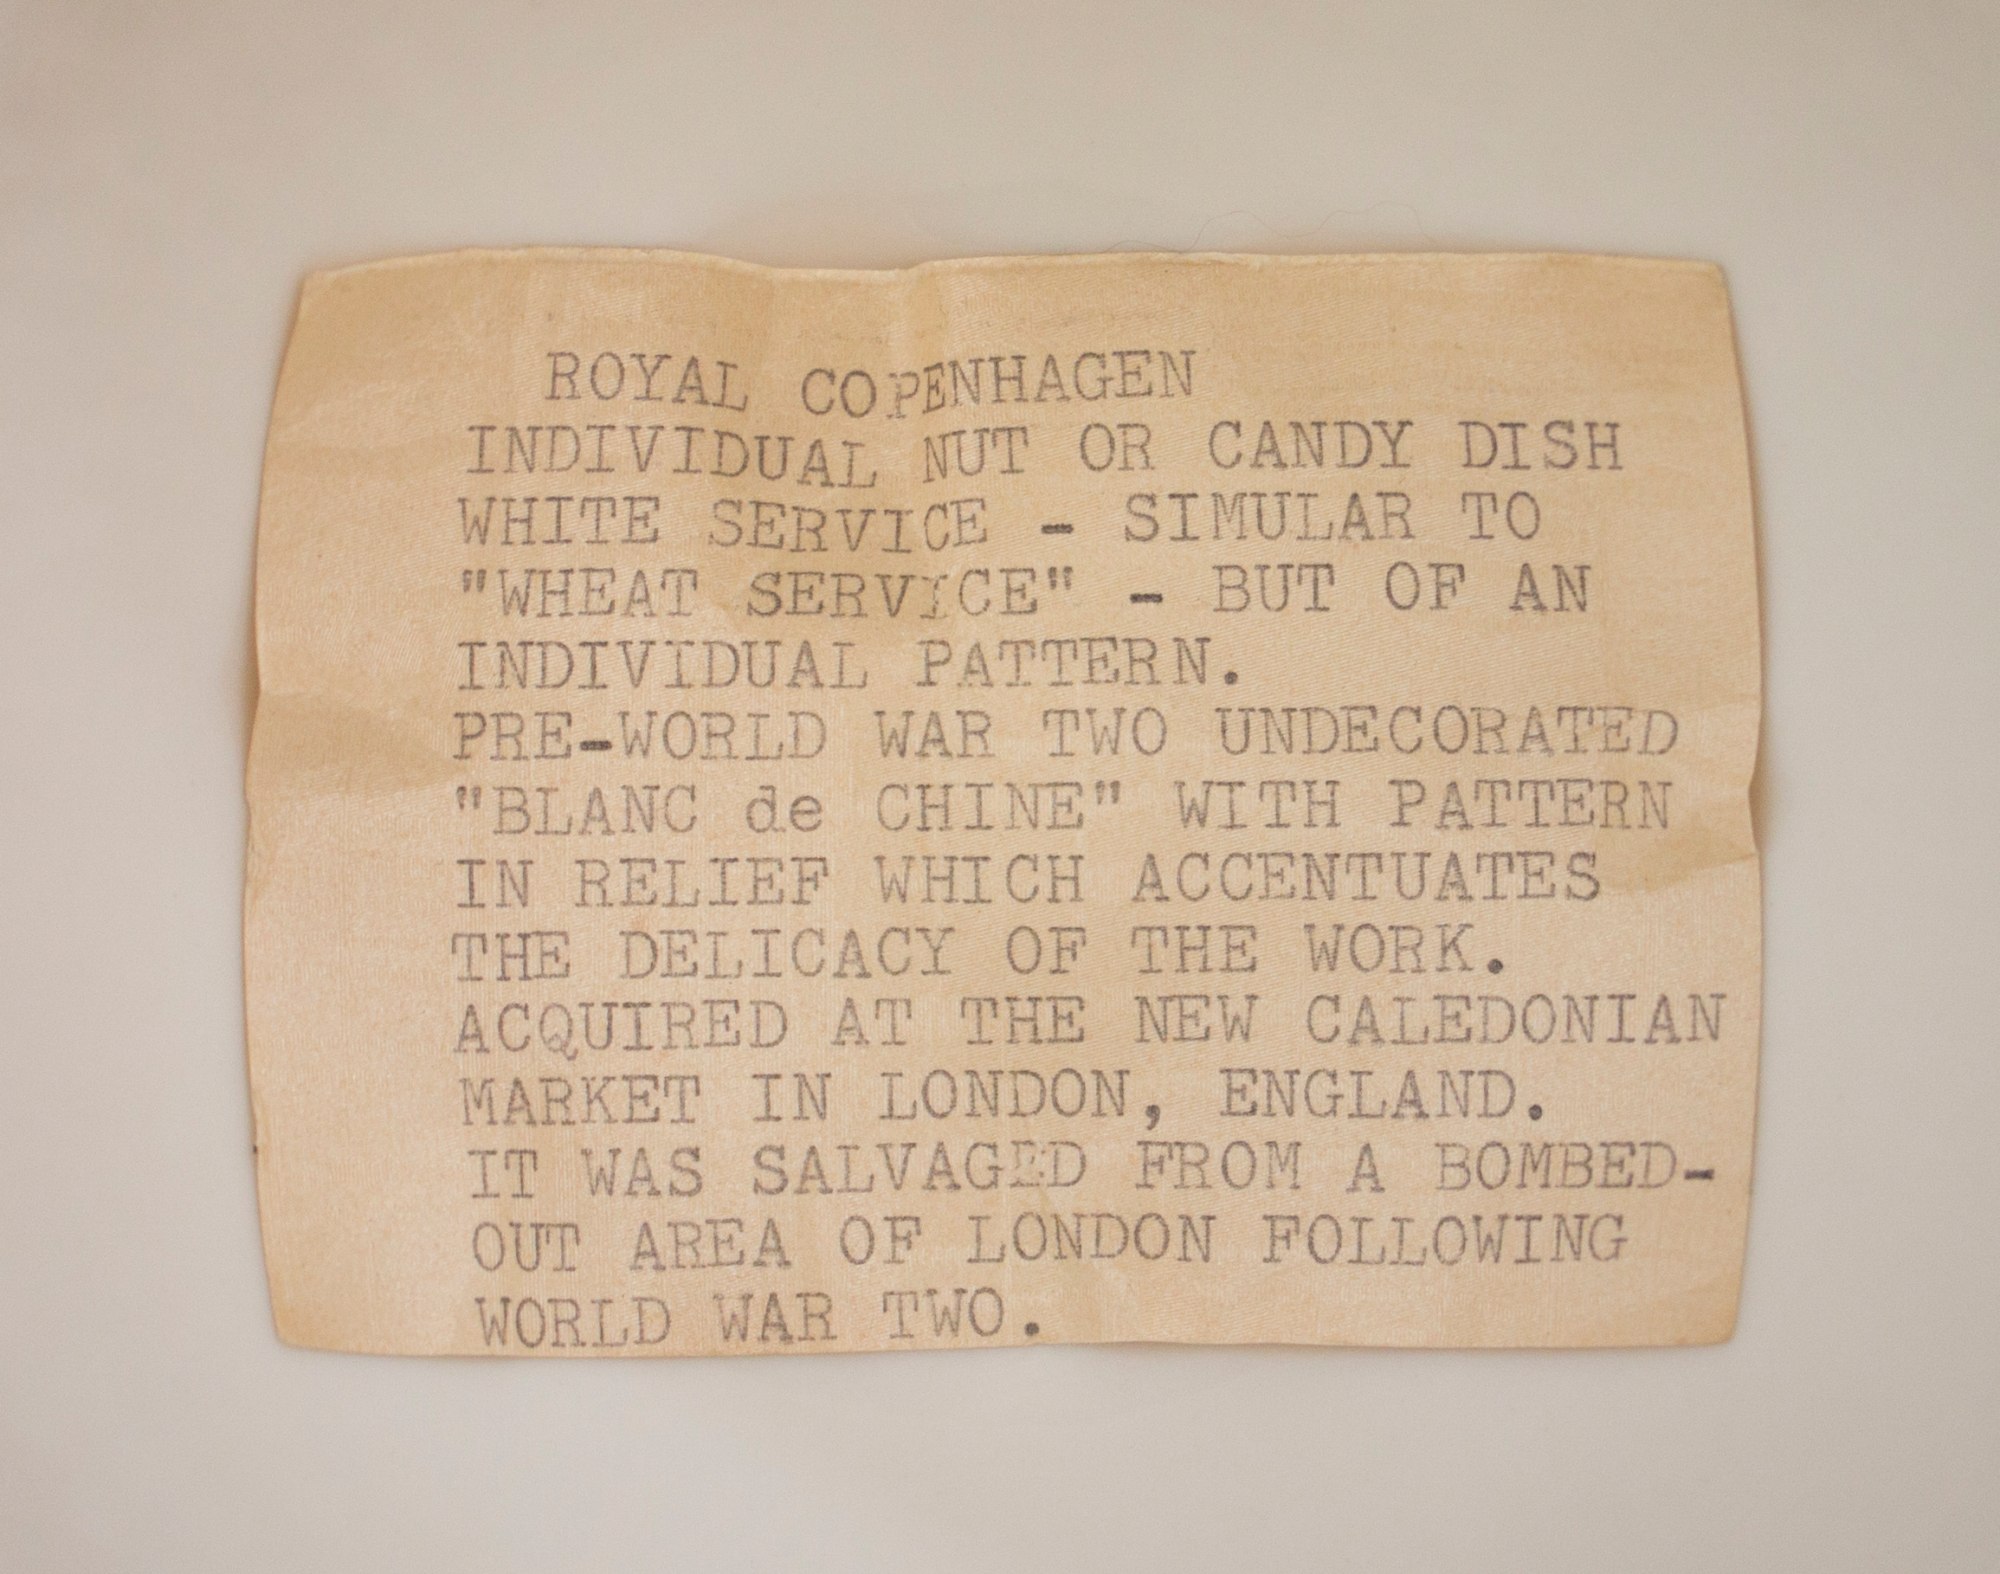 ROYAL COPENHAGEN
INDIVIDUAL NUT OR CANDY DISH
WHITE SERVICE - SIMULAR TO
"WHEAT SERVICE" - BUT OF AN
INDIVIDUAL PATTERN.
PRE-WORLD WAR TWO UNDECORATED
"BLANC de CHINE" WITH PATTERN
IN RELIEF WHICH ACCENTUATES
THE DELICACY OF THE WORK.
ACQUIRED AT THE NEW CALEDONIAN
MARKET IN LONDON, ENGLAND.
IT WAS SALVAGED FROM A BOMBED-
OUT AREA OF LONDON FOLLOWING
WORLD WAR TWO.